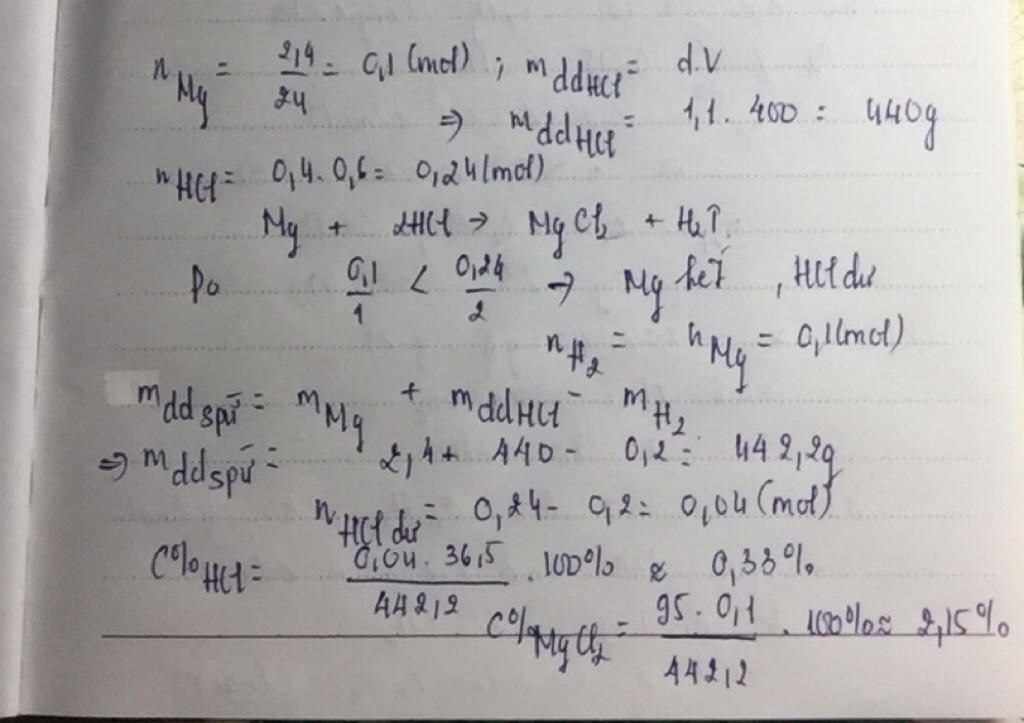 nMg = 2,4/24 = 0,1 (mol) ; mddHCl = d.V
⇒ mddHCl = 1,1 . 400 = 440g
nHCl = 0,4 . 0,6 = 0,24 (mol)
Mg + 2HCl → MgCl2 + H2↑.
Do 0,1/1 < 0,24/2 → Mg hết , HCl dư
nH2 = nMg = 0,1 (mol)
mddspứ = mMg + mddHCl - mH2
⇒ mddspứ = 2,4 + 440 - 0,2 = 442,2g
nHCl dư = 0,24 - 0,2 = 0,04 (mol)
C%HCl = 0,04 . 36,5/442,2 . 100% ≈ 0,33%
C%MgCl2 = 95 . 0,1/442,2 . 100% ≈ 2,15%